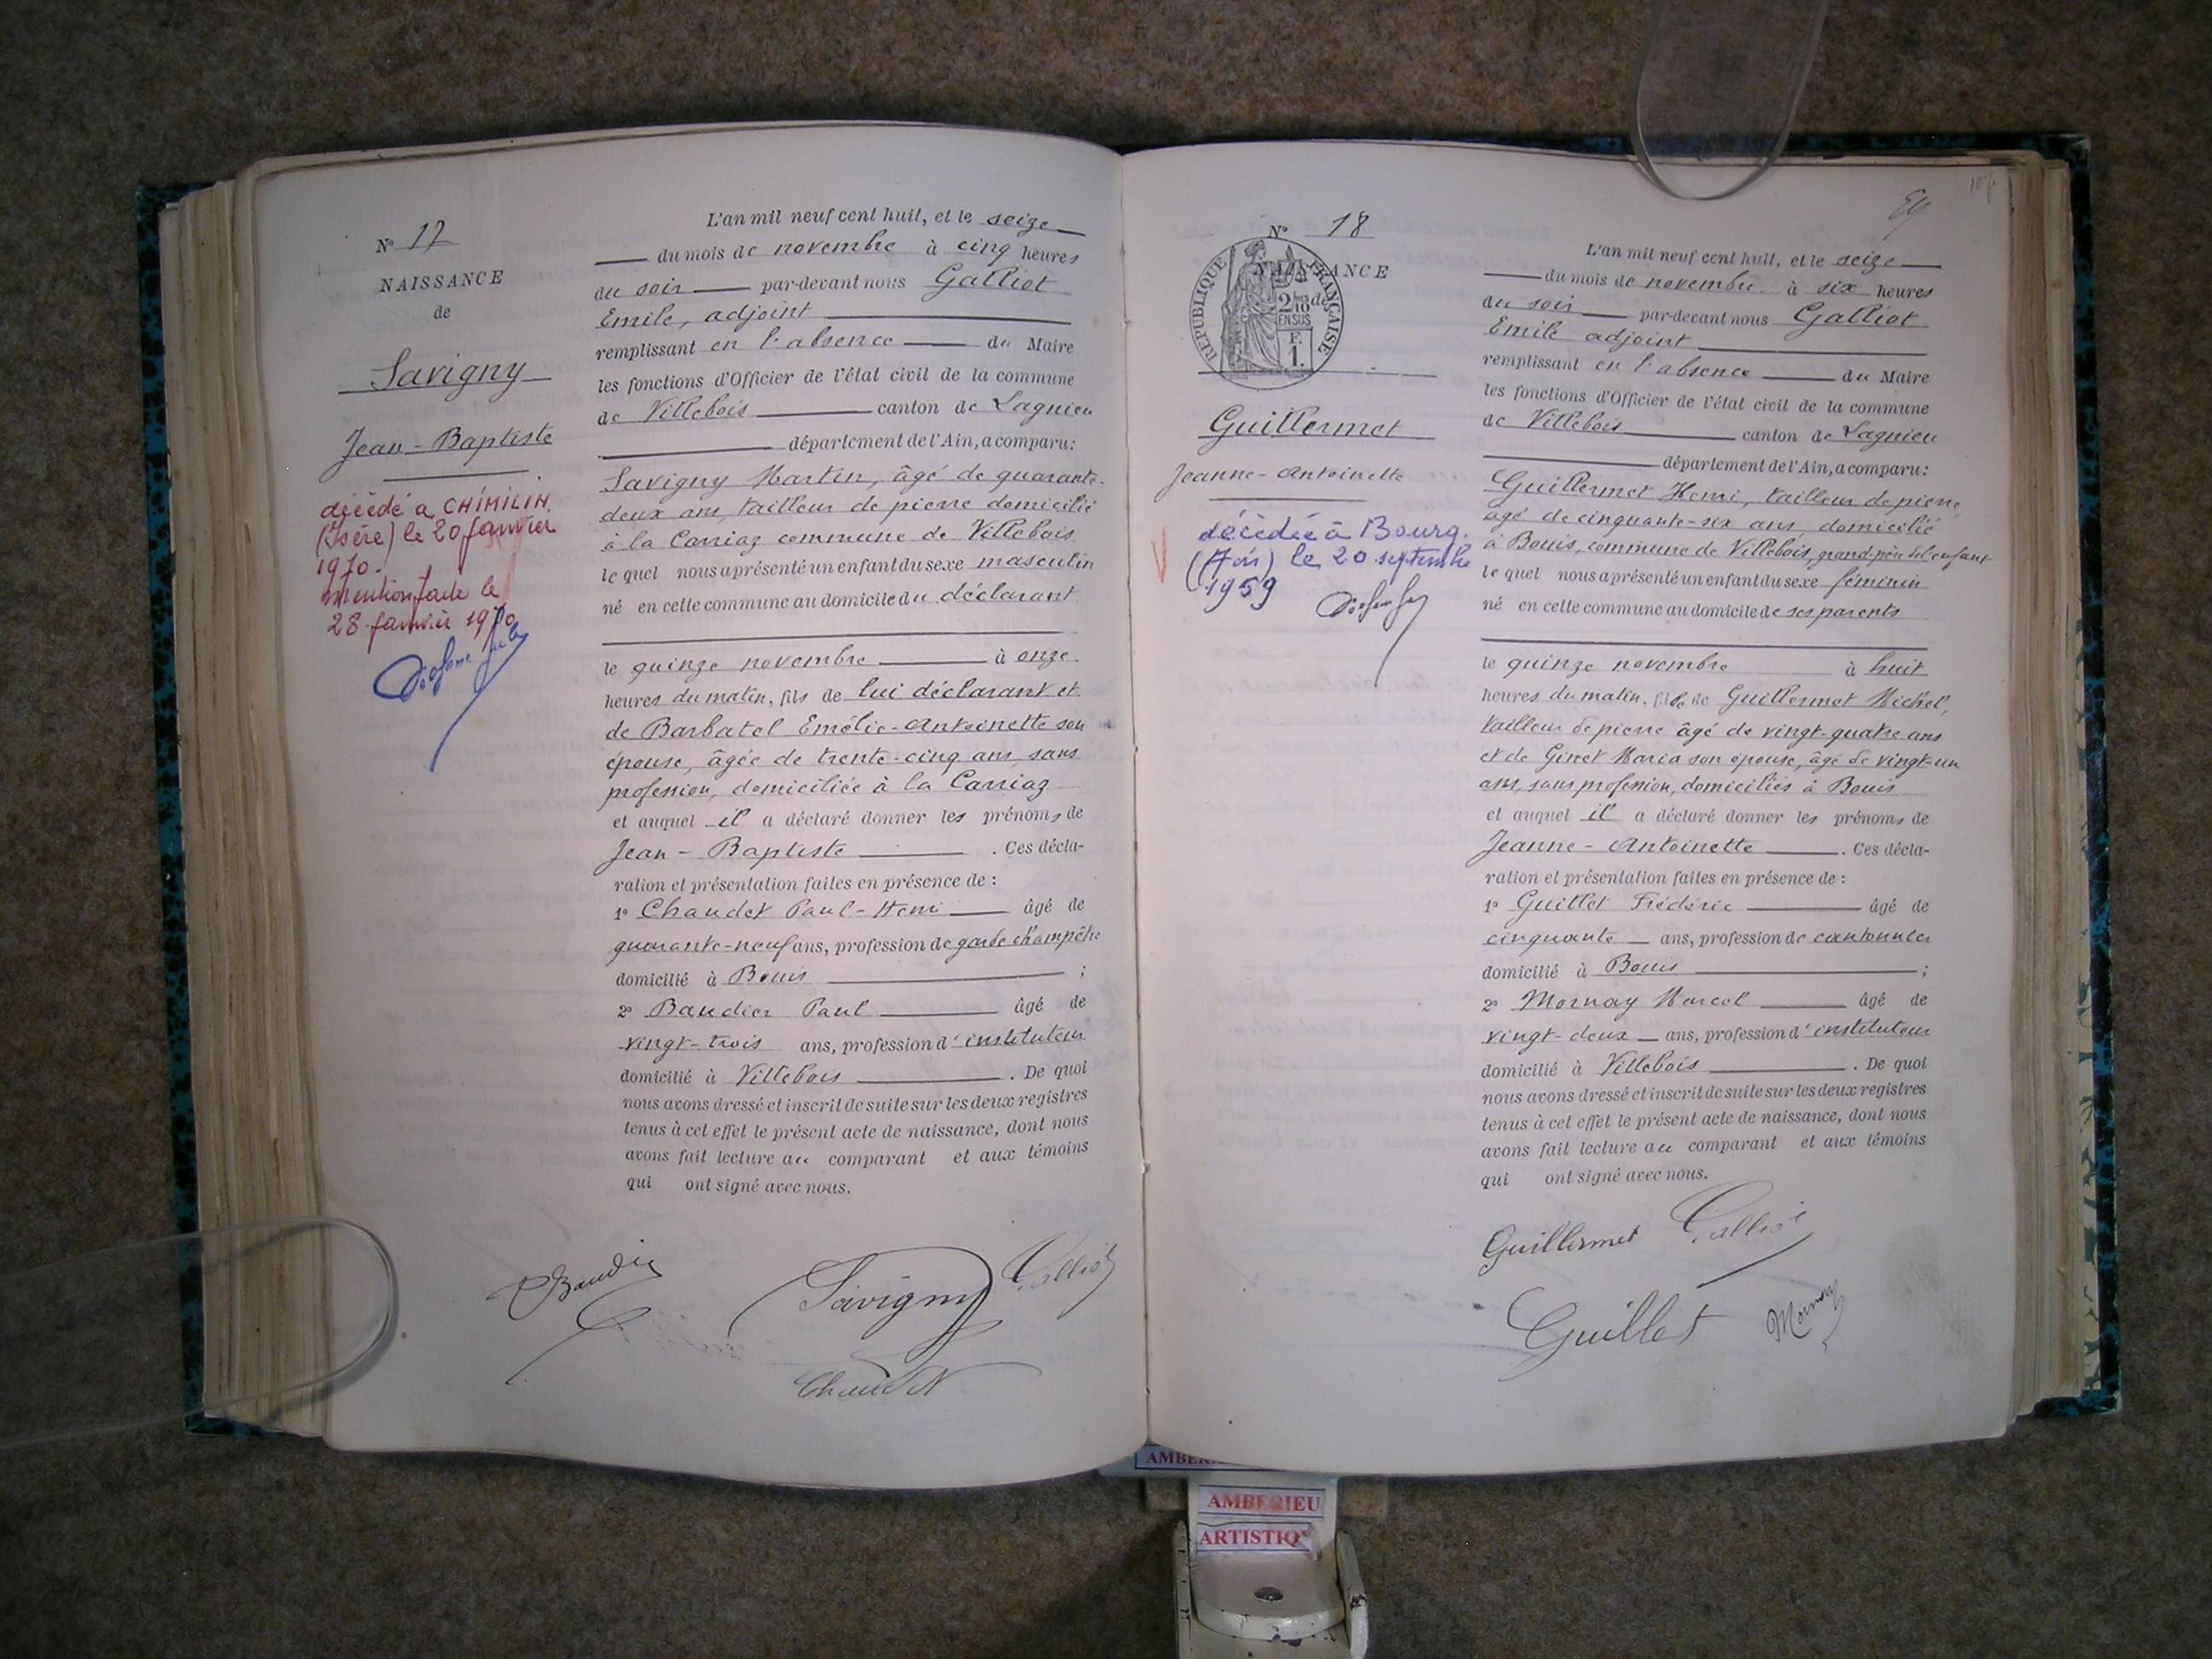 N° 17
NAISSANCE
de
Savigny
Jean-Baptiste
décédé à CHIMILIN
(Isère) le 20 janvier
1970.
Mention faite le
28 janvier 1970
L'an mil neuf cent huit, et le seize
du mois de novembre à cinq heures
du soir par-devant nous Galliot
Emile, adjoint
remplissant en l'absence du Maire
les fonctions d'Officier de l'état civil de la commune
de Villebois canton de Lagnieu
département de l'Ain, a comparu:
Savigny Martin, âgé de quarante-
deux ans, tailleur de pierre domicilié
à la Carriaz commune de Villebois
le quel nous a présenté un enfant du sexe masculin
né en cette commune au domicile du déclarant
le quinze novembre à onze
heures du matin, fils de lui déclarant et
de Barbatel Emélie-Antoinette son
épouse, âgée de trente-cinq ans, sans
profession, domiciliée à la Carriaz
et auquel il a déclaré donner les prénoms de
Jean-Baptiste . Ces décla-
ration et présentation faites en présence de :
1° Chaudet Paul-Henri âgé de
quarante-neuf ans, profession de garde champêtre
domicilié à Bouis ;
2° Baudier Paul âgé de
vingt-trois ans, profession d'instituteur
domicilié à Villebois . De quoi
nous avons dressé et inscrit de suite sur les deux registres
tenus à cet effet le présent acte de naissance, dont nous
avons fait lecture au comparant et aux témoins
qui ont signé avec nous.
Baudier
Savigny
Galliot
Chaudet
N° 18
NAISSANCE
de
REPUBLIQUE FRANÇAISE
2/10
EN SUS
F.
1.
Guillermet
Jeanne-Antoinette
décédée à Bourg.
(Ain) le 20 septembre
1959
L'an mil neuf cent huit, et le seize
du mois de novembre à six heures
du soir par-devant nous Galliot
Emile adjoint
remplissant en l'absence du Maire
les fonctions d'Officier de l'état civil de la commune
de Villebois canton de Lagnieu
département de l'Ain, a comparu:
Guillermet Henri, tailleur de pierre,
âgé de cinquante-six ans, domicilié
à Bouis, commune de Villebois, grand-père de l'enfant
le quel nous a présenté un enfant du sexe féminin
né en cette commune au domicile de ses parents
le quinze novembre à huit
heures du matin, fille de Guillermet Michel,
tailleur de pierre âgé de vingt-quatre ans
et de Giret Maria son épouse, âgé de vingt-un
ans, sans profession, domiciliés à Bouis
et auquel il a déclaré donner les prénoms de
Jeanne-Antoinette . Ces décla-
ration et présentation faites en présence de :
1° Guillet Frédéric âgé de
cinquante ans, profession de cantonnier
domicilié à Bouis ;
2° Mornay Marcel âgé de
vingt-deux ans, profession d'instituteur
domicilié à Villebois . De quoi
nous avons dressé et inscrit de suite sur les deux registres
tenus à cet effet le présent acte de naissance, dont nous
avons fait lecture au comparant et aux témoins
qui ont signé avec nous.
Guillermet
Galliot
Guillet
Mornay
AMBERIEU
ARTISTIQ